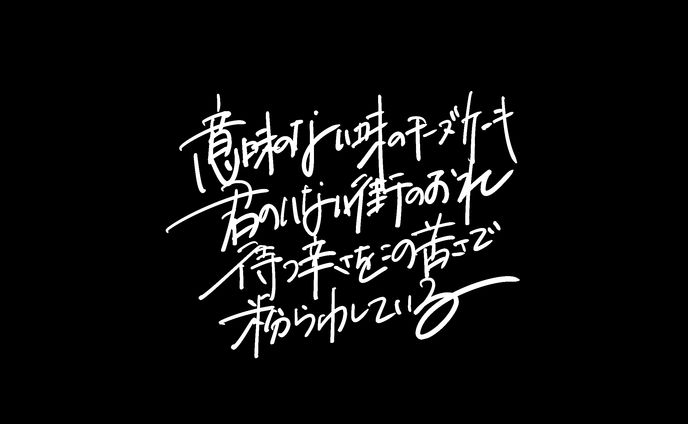 意味のない味のチーズケーキ
君のいない街のおれ
待つ辛さをこの苦さで
粉らわしている